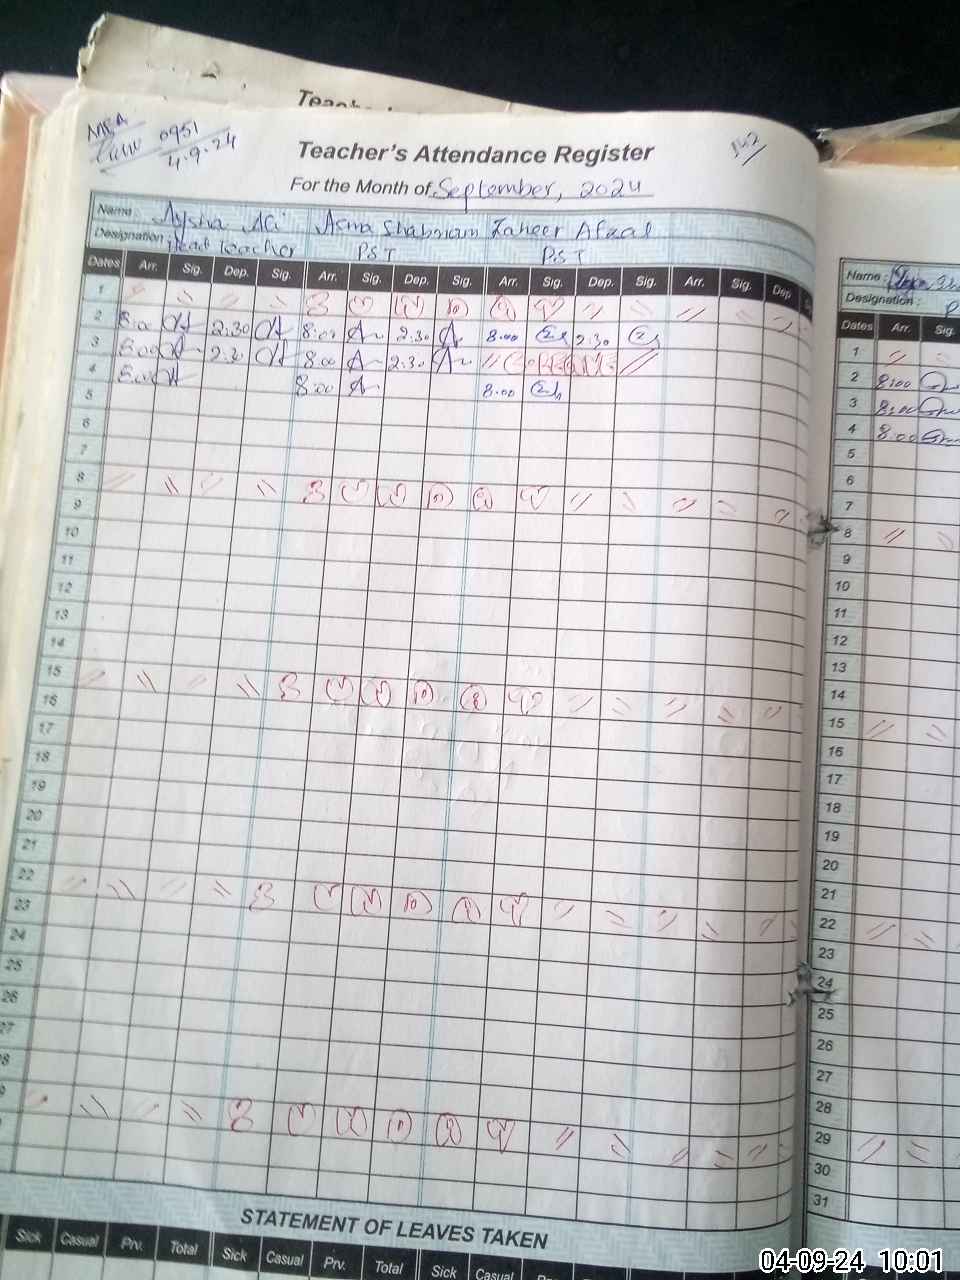 Teache
MEA
0951
4.9.24
142
Teacher's Attendance Register
For the Month of September, 2024
Name: Aysha Ali Asma Shabnam Zaheer Afzal
Designation: Head teacher PST PST
Dates Arr. Sig. Dep. Sig. Arr. Sig. Dep. Sig. Arr. Sig. Dep. Sig. Arr. Sig. Dep
1 S U N D A Y
2 8:00 2:30 8:00 2:30 8:00 2:30
3 8:00 2:30 8:00 2:30
4 8:00 8:00 8:00
5
6
7
8 S U N D A Y
9
10
11
12
13
14
15 S U N D A Y
16
17
18
19
20
21
22 S U N D A Y
23
24
25
26
27
8
9 S U N D A Y
STATEMENT OF LEAVES TAKEN
Sick Casual Prv. Total Sick Casual Prv. Total Sick Casual
Name:
Designation:
Dates Arr. Sig.
1
2 8:00
3 8:00
4 8:00
5
6
7
8
9
10
11
12
13
14
15
16
17
18
19
20
21
22
23
24
25
26
27
28
29
30
31
04-09-24 10:01